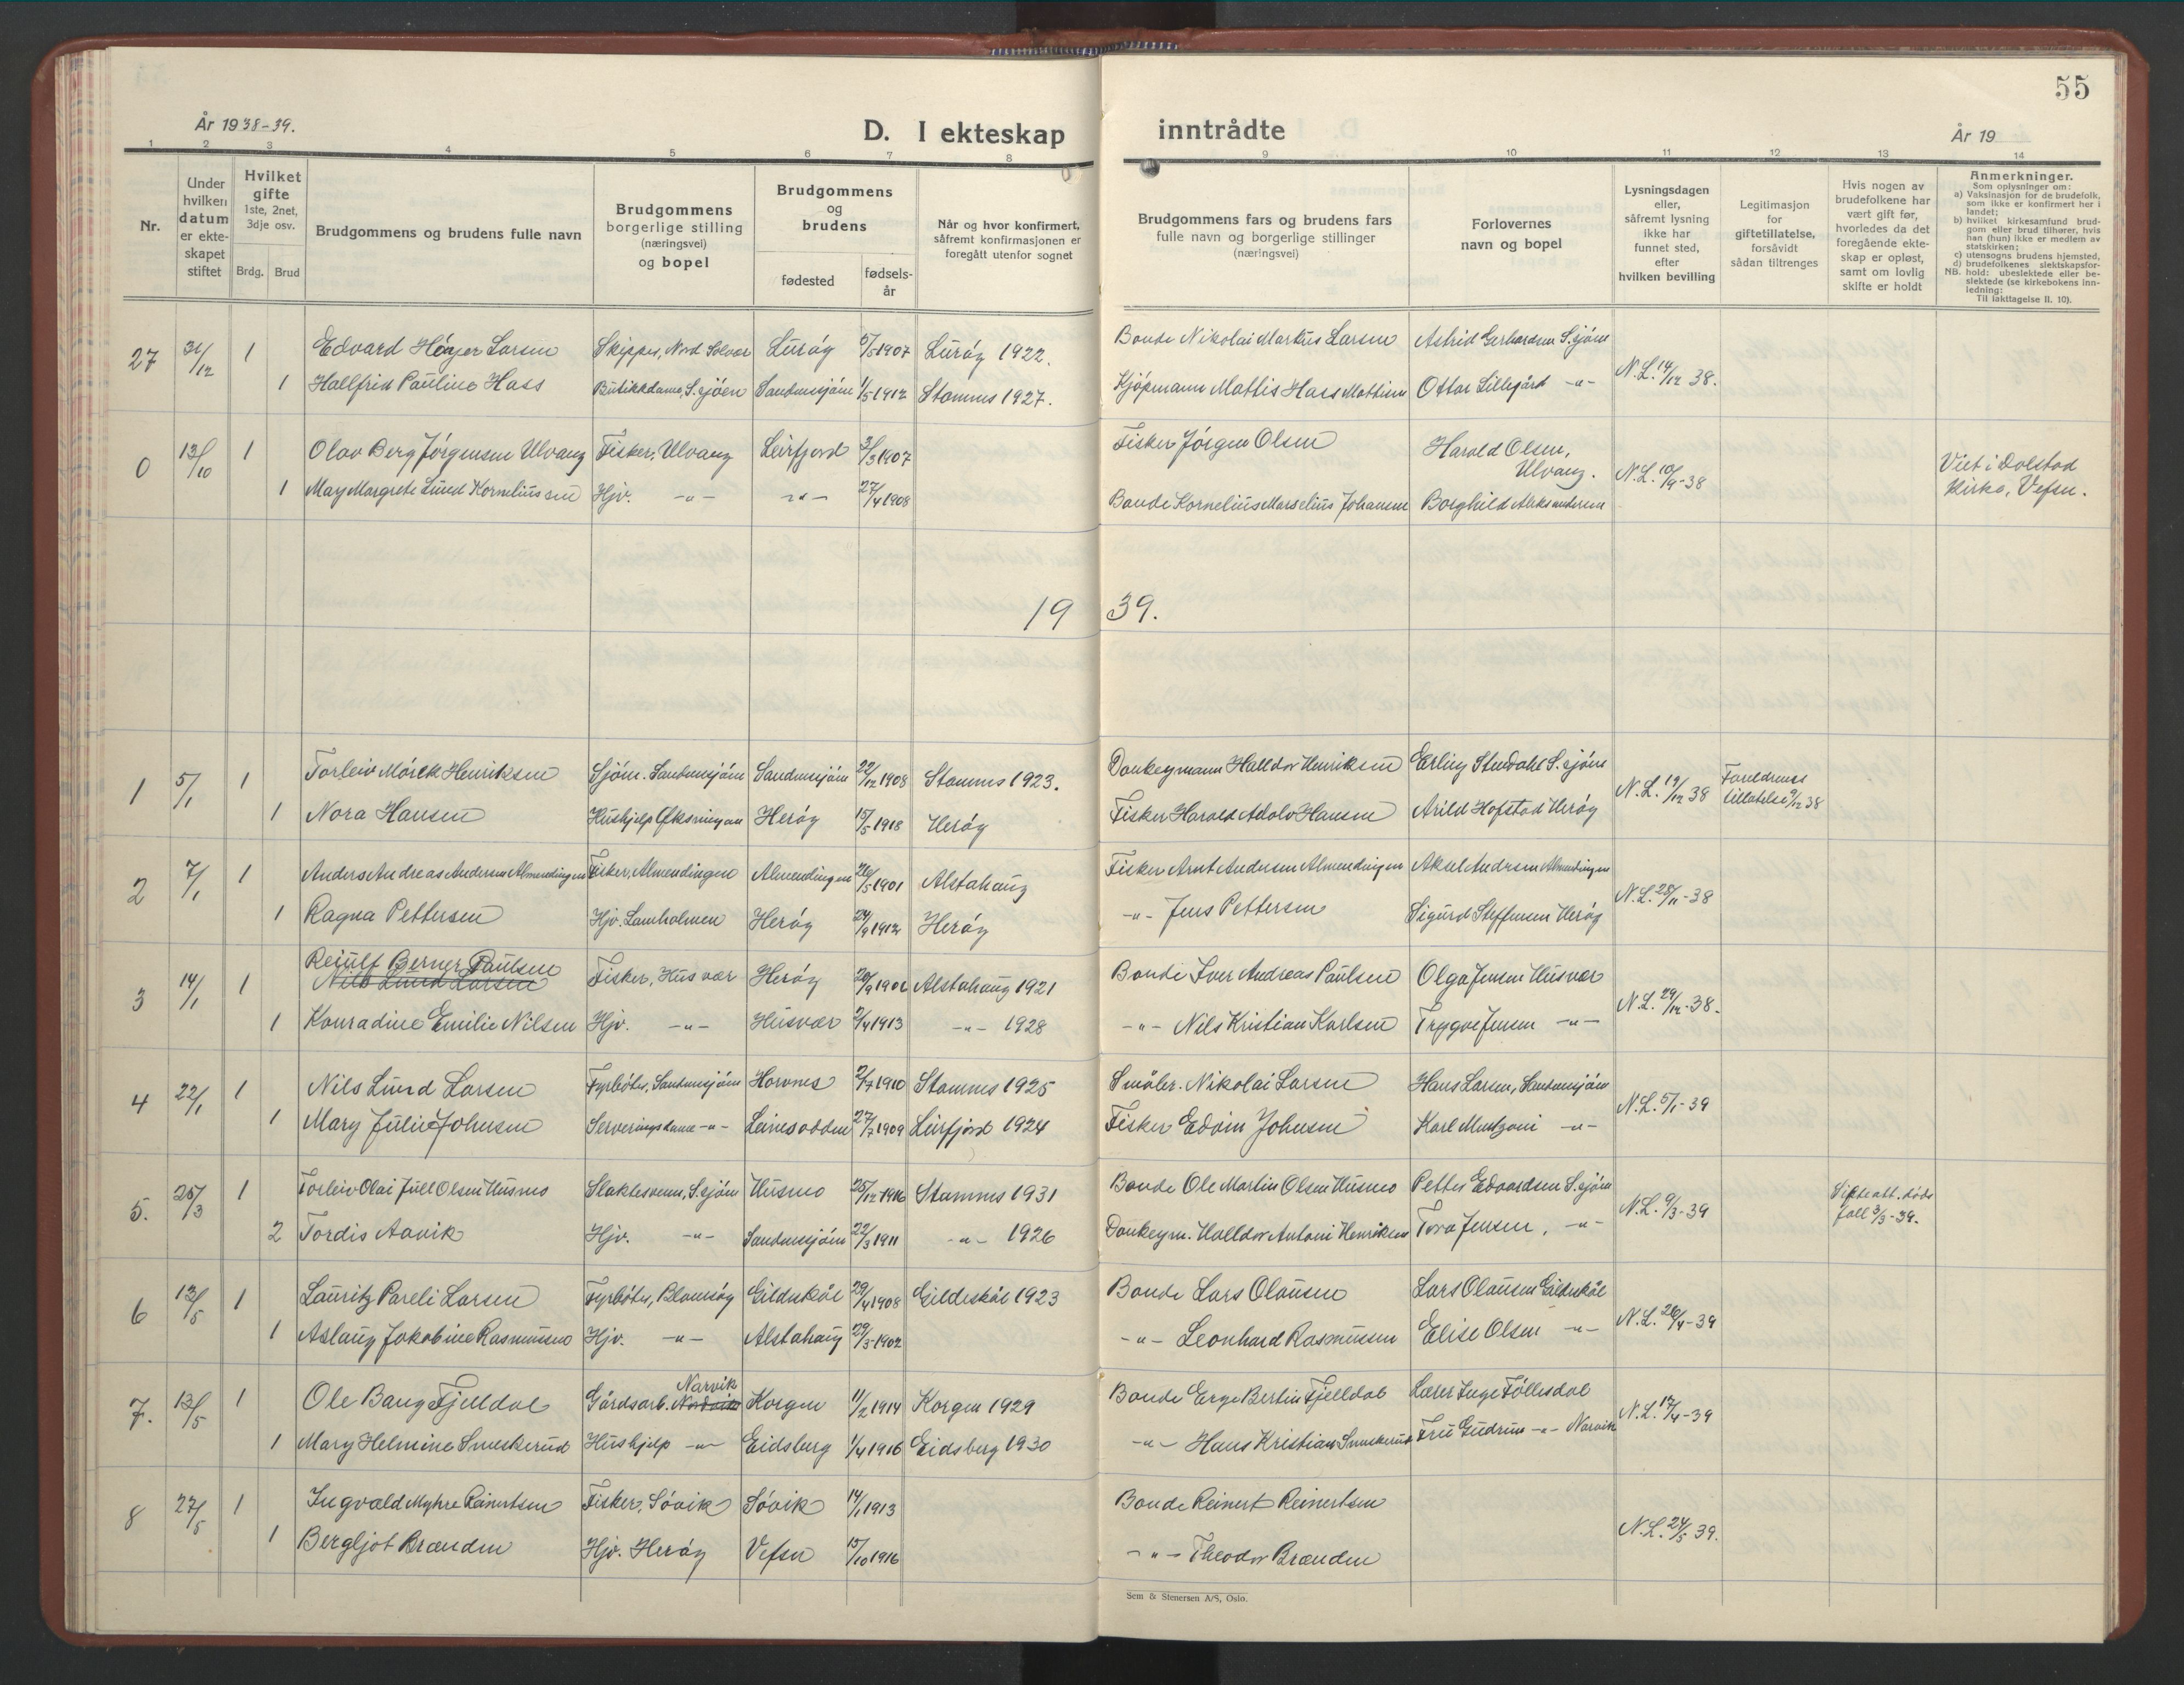 55
År 1938-39.
D. I ekteskap inntrådte
År 19
1 2 3 4 5 6 7 8 9 10 11 12 13 14
Nr.
Under hvilken datum er ekteskapet stiftet
Hvilket gifte 1ste, 2net, 3dje osv.
Brdg. Brud
Brudgommens og brudens fulle navn
Brudgommens borgerlige stilling (næringsvei) og bopel
Brudgommens og brudens
fødested
fødsels-år
Når og hvor konfirmert, såfremt konfirmasjonen er foregått utenfor sognet
Brudgommens fars og brudens fars fulle navn og borgerlige stillinger (næringsvei)
Forlovernes navn og bopel
Lysningsdagen eller, såfremt lysning ikke har funnet sted, efter hvilken bevilling
Legitimasjon for giftetillatelse, forsåvidt sådan tiltrenges
Hvis nogen av brudefolkene har vært gift før, hvorledes da det foregående ekteskap er opløst, samt om lovlig skifte er holdt
Anmerkninger.
Som oplysninger om:
a) Vaksinasjon for de brudefolk, som ikke er konfirmert her i landet;
b) hvilket kirkesamfund brudgom eller brud tilhører, hvis han (hun) ikke er medlem av statskirken;
c) utensogns brudens hjemsted,
d) brudefolkenes slektskapsforhold: ubeslektede eller beslektede (se kirkebokens innledning:
NB.
Til iakttagelse II. 10).
27 31/12 1 Edvard Høyer Larsen Skipper, Nord Solvær Lurøy 5/5 1907 Lurøy 1922. Bonde Nikolai Markus Larsen Astrid Gerhardsen S.sjøen
1 Hallfrid Pauline Hass Butikkdame, S.sjøen Sandnessjøen 1/5 1912 Stamnes 1927. Kjøpmann Mattis Hass Mattisen Ottar Lillegård -"- N.L. 14/12 38.
0 13/10 1 Olav Berg Jørgensen Ulvang Fisker, Ulvang Leirfjord 3/3 1907 Fisker Jørgen Olsen Harald Olsen, Ulvang.
1 May Margrete Lund Korneliussen Hjv. -"- -"- 27/4 1908 Bonde Kornelius Marselius Johansen Borghild Aleksandersen N.L. 10/9-38 Viet i Dolstad Kirke, Vefsn.
1939.
1 5/1 1 Torleiv Mørck Henriksen Sjøm. Sandnessjøen Sandnessjøen 22/12 1908 Stamnes 1923. Donkeymann Halldor Henriksen Erling Stendahl S.sjøen
1 Nora Hansen Hushjelp Herøy 15/5 1918 Herøy Fisker Harald Adolv Hansen Arild Hofstad Herøy N.L. 19/12 38 Foreldrenes tillatelse 9/12 38
2 7/1 1 Anders Andreas Andersen Almendingen Fisker, Almendingen Almendingen 26/5 1901 Alstahaug Fisker Arnt Andersen Almendingen Aksel Andersen Almendingen
1 Ragna Pettersen Hjv. Lamholmen Herøy 24/9 1912 Herøy -"- Jens Pettersen Sigurd Steffensen Herøy N.L. 25/11-38
3 14/1 1 Reiulf Berner Paulsen
Nils Lund Larsen
Fisker, Husvær Herøy Alstahaug 1921 Bonde Iver Andreas Paulsen Olga Jensen Husvær
1 Konradine Emilie Nilsen Hjv. -"- Husvær 2/4 1913 -"- 1928 -"- Nils Kristian Karlsen Trygve Jensen -"- N.L. 29/12-38.
4 22/1 1 Nils Lund Larsen Fyrbøter, Sandnessjøen Horvnes 2/7 1910 Stamnes 1925 Småbr. Nikolai Larsen Hans Larsen, Sandnessjøen
1 Mary Julie Johnsen Serveringsdame -"- Leinesodden 27/7 1909 Leirfjord 1924 Fisker Edvin Johnsen Karl -"- N.L. 5/1-39
5. 25/3 1 Torleiv Olai Jull Olsen Husmo Slaktesvenn, S.sjøen Husmo 25/12 1916 Stamnes 1931 Bonde Ole Martin Olsen Husmo Petter Edvardsen S.sjøen
2 Tordis Aavik Hjv. -"- Sandnessjøen 22/3 1911 -"- 1926 Donkeym. Halldor Antoni Henriksen Tora Jensen, -"- N.L. 9/3-39 Skifteatt. dødsfall 9/3-39.
6 13/5 1 Lauritz Pareli Larsen Fyrbøter, Blomsøy Gildeskål 29/4 1908 Gildeskål 1923 Bonde Lars Olausen Lars Olausen Gildeskål
1 Aslaug Jakobine Rasmussen Hjv. -"- Alstahaug 29/3 1902 -"- Leonhard Rasmussen Elise Olsen -"- N.L. 26/4-39
7. 13/5 1 Ole Bang Fjelldal Gårdsarb. Nordvik Narvik Korgen 11/2 1914 Korgen 1929 Bonde Erge Bertin Fjelldal Lærer Inge Føllesdal
1 Mary Helmine Smeskerud Hushjelp -"- Eidsberg 1/4 1916 Eidsberg 1930 -"- Hans Kristian Smeskerud Fru Gudrun -"- Narvik N.L. 17/4-39
8 27/5 1 Ingvald Myhre Reinertsen Fisker, Søvik Søvik 14/1 1913 Bonde Reinert Reinertsen
1 Bergljot Brænden Hjv. Herøy Vefsn 15/10 1916 -"- Theodor Brænden N.L. 24/5 39.
Sem & Stenersen A/S, Oslo.